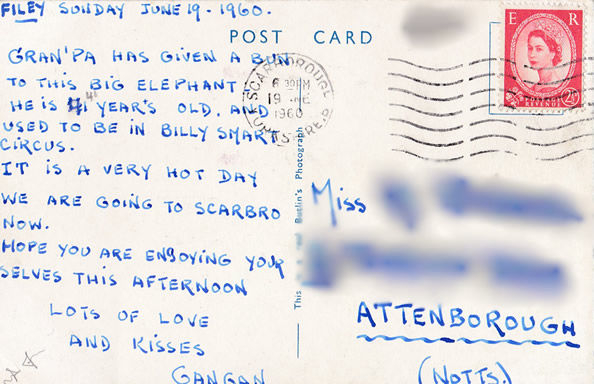 FILEY SUNDAY JUNE 19 - 1960.
GRAN'PA HAS GIVEN A BUN
TO THIS BIG ELEPHANT.
HE IS 41 YEAR'S OLD. AND
USED TO BE IN BILLY SMART
CIRCUS.
IT IS A VERY HOT DAY
WE ARE GOING TO SCARBRO
NOW.
HOPE YOU ARE ENJOYING YOUR
SELVES THIS AFTERNOON
LOTS OF LOVE
AND KISSES
GANGAN
POST CARD
This is a real Butlin's Photograph
SCARBOROUGH
6 30PM
19 JNE
1960
YORKSHIRE
E R
2½
Miss
ATTENBOROUGH
(NOTTS.)